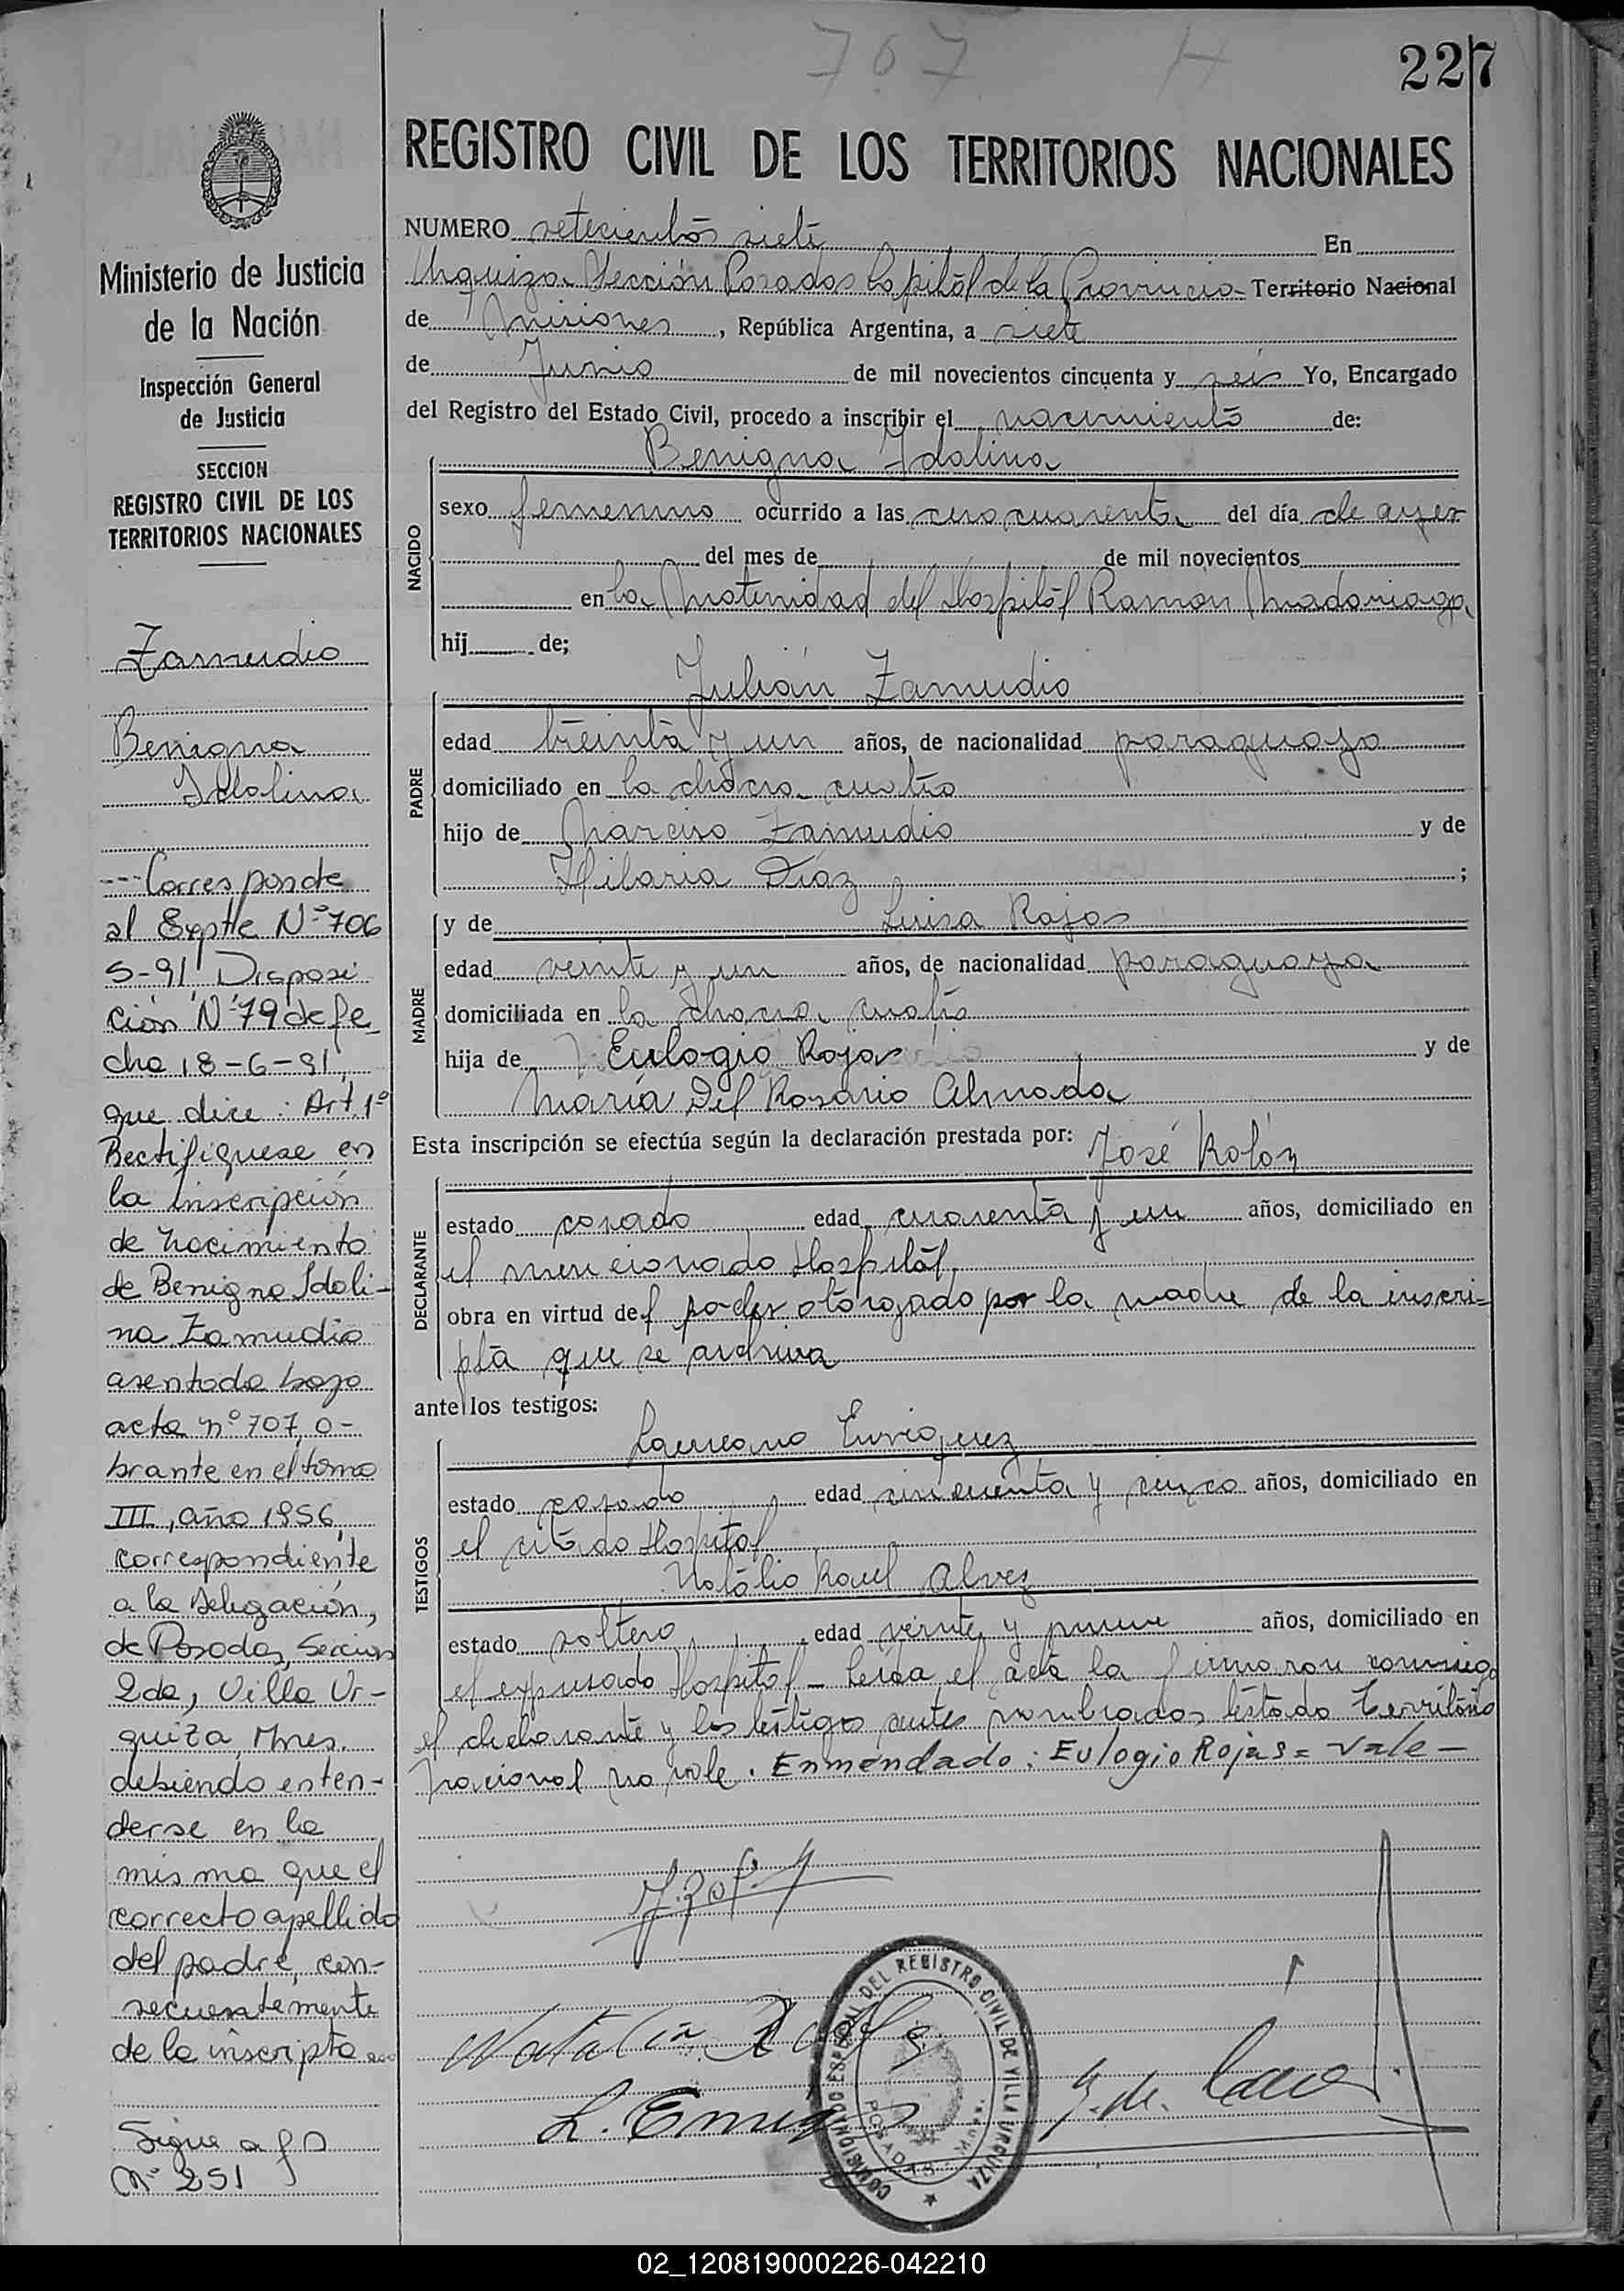 707 H
227
REGISTRO CIVIL DE LOS TERRITORIOS NACIONALES
Ministerio de Justicia
de la Nación
Inspección General
de Justicia
SECCION
REGISTRO CIVIL DE LOS
TERRITORIOS NACIONALES
Zamudio
Benigna
Idalina
---Corresponde
al Exptte Nº 706
S-91 Disposi
ción Nº 79 de fe
cha 18-6-91,
que dice: Art. 1º
Rectifiquese en
la inscripción
de Nacimiento
de Benigna Idali-
na Zamudio
asentada bajo
acta nº 707, o-
brante en el tomo
III, año 1956,
correspondiente
a la Delegación,
de Posadas, Sección
2da, Villa Ur-
quiza, Mnes.
debiendo enten-
derse en la
misma que el
correcto apellido
del padre, con-
secuentemente
de la inscripta
Sigue a fs
Nº 251
NUMERO setecientos siete En
Urquiza Sección Posadas Capital de la Provincia Territorio Nacional
de Misiones, República Argentina, a siete
de Junio de mil novecientos cincuenta y seis Yo, Encargado
del Registro del Estado Civil, procedo a inscribir el nacimiento de:
NACIDO
Benigna Idalina
sexo femenino ocurrido a las cero cuarenta del día de ayer
del mes de de mil novecientos
en la Maternidad del Hospital Ramon Madariaga
hij de;
PADRE
Julián Zamudio
edad treinta y un años, de nacionalidad paraguayo
domiciliado en la chacra cuatro
hijo de Narciso Zamudio y de
Hilaria Díaz ;
MADRE
y de Luisa Rojas
edad veinte y un años, de nacionalidad paraguaya
domiciliada en la chacra cuatro
hija de Eulogio Rojas y de
María Del Rosario Almada
Esta inscripción se efectúa según la declaración prestada por: José Rolón
DECLARANTE
estado casado edad cuarenta y un años, domiciliado en
el mencionado Hospital,
obra en virtud del poder otorgado por la madre de la inscri-
pta que se archiva
ante los testigos:
TESTIGOS
Laureano Enriquez
estado casado edad cincuenta y cinco años, domiciliado en
el citado Hospital
Natalio Raul Alvez
estado soltero, edad veinte y nueve años, domiciliado en
el expresado Hospital - Leída el acta la firmaron conmigo
el declarante y los testigos antes nombrados testado Territorio
Nacional no vale. Enmendado: Eulogio Rojas = Vale -
COMISIONADO ESPECIAL DEL REGISTRO CIVIL DE VILLA URQUIZA
POSADAS
02_120819000226-042210